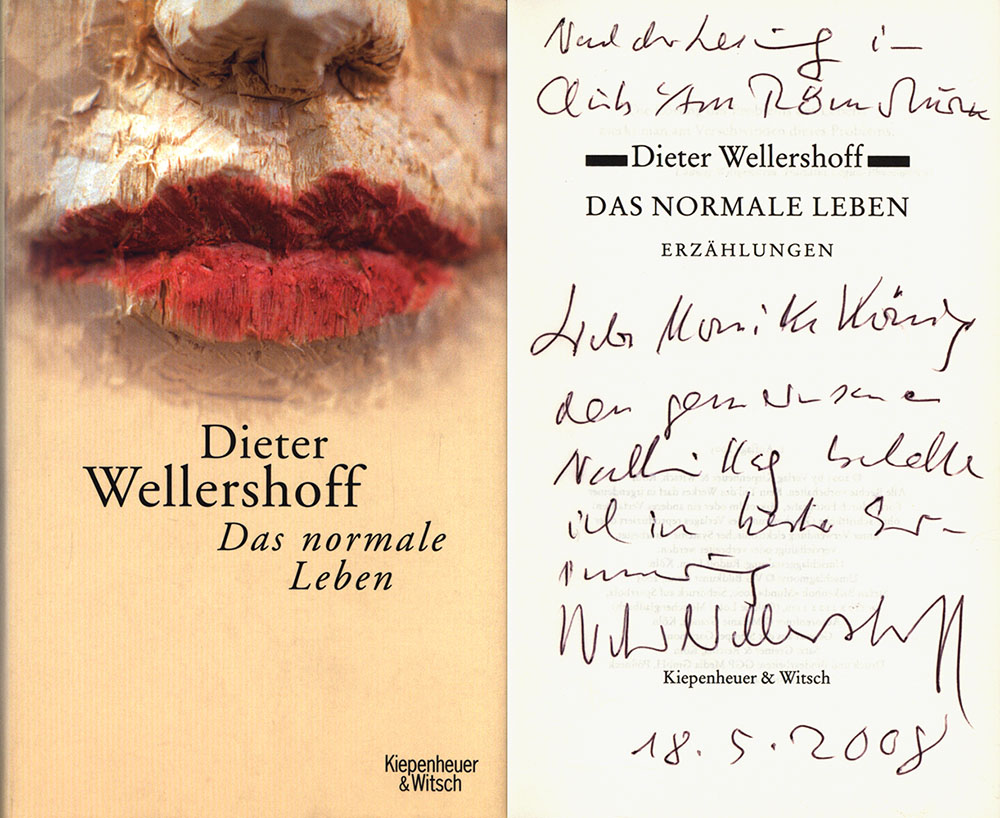 Dieter
Wellershoff
Das normale
Leben
Kiepenheuer
& Witsch
Nach der Lesung in
Club "Am Römerturm
Dieter Wellershoff
DAS NORMALE LEBEN
ERZÄHLUNGEN
Liebe Monika König
den gemeinsamen
Nachmittag behalte
ich in bester Er-
innerung
Dieter Wellershoff
Kiepenheuer & Witsch
18.5.2008